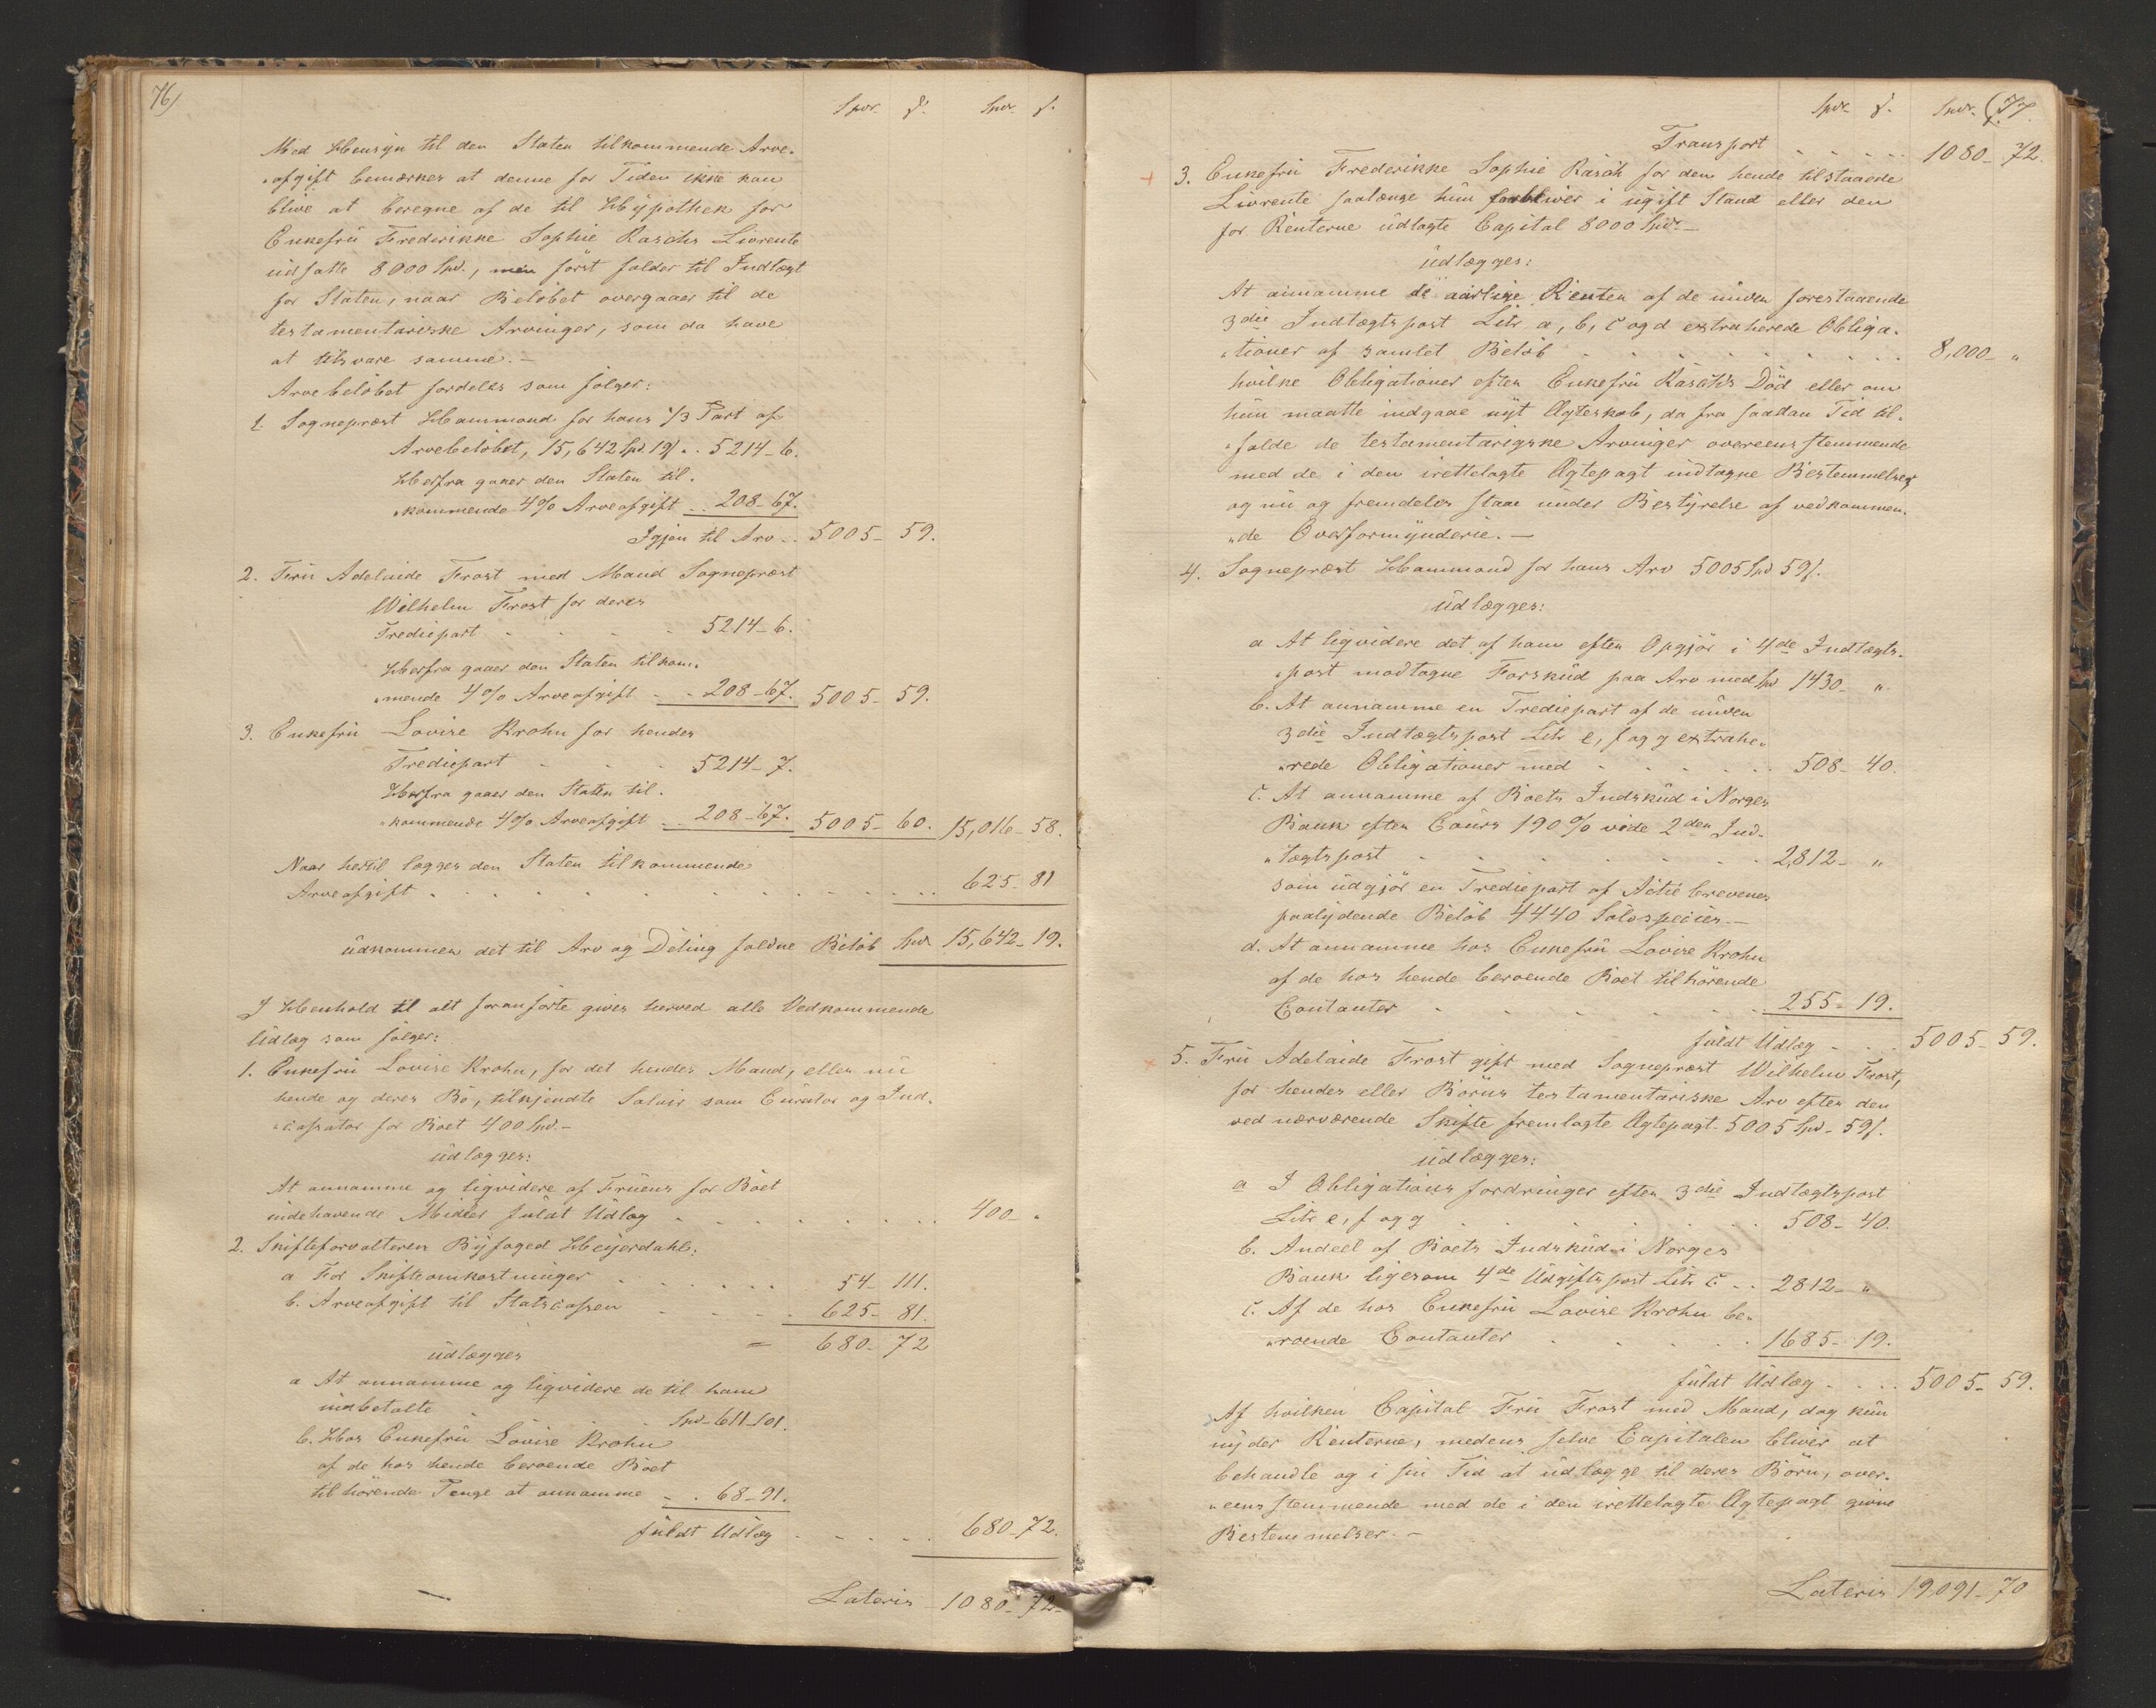 76)
Spdr. ß. Spdr. ß.
Med Hensyn til den Staten tilkommende Arve-
„afgift bemærkes at denne for Tiden ikke kan
blive at beregne af de til Hÿpothek for
Enkefrü Frederikke Sophie Raschs Livrente
üdsatte 8000 Spd., men först falder til Indtægt
for Staten, naar Belöbet overgaaer til de
testamentariske Arvinger, som da have
at tilsvare samme. –
Arvebelöbet fordeles som fölger:
1. Sognepræst Hammond for hans 1/3 Part af
Arvebelöbet, 15,642 Spd. 19ß . . 5214 – 6.
Herfra gaaer den Staten til-
„kommende 4% Arveafgift . . 208 – 67.
Igjen til Arv . . 5005 – 59.
2. Frü Adelaide Frost med Mand Sognepræst
Wilhelm Frost for deres
Trediepart . . . . 5214 – 6.
Herfra gaaer den Staten tilkom-
„mende 4% Arveafgift . . 208 – 67. 5005 – 59.
3. Enkefrü Lovise Krohn for hendes
Trediepart . . . 5214 – 7.
Herfra gaaer den Staten til-
„kommende 4% Arveafgift . . 208 – 67. 5005 – 60. 15,016 – 58.
Naar hertil lægges den Staten tilkommende
Arveafgift . . . . . . . . . . . . 625 – 81
üdkommer det til Arv og Deling faldne Belöb Spdr. 15,642 – 19.
I Henhold til alt foranförte gives herved alle Vedkommende
Üdlæg som fölger:
1. Enkefrü Lovise Krohn, for det hendes Mand, eller nü
hende og deres Bo, tilkjendte Salair som Cürator og Ind-
„cassator for Boet 400 Spd. –
üdlægges:
At annamme og liqvidere af Früens for Boet
indehavende Midler füldt Üdlæg . . . . . . . . 400 – „
2. Skifteforvalteren Bÿfoged Heÿerdahl:
a For Skifteomkostninger . . . . . . 54 – 111.
b. Arveafgift til Statscassen . . . . 625 – 81.
üdlægges = 680 – 72
a At annamme og liqvidere de til ham
indbetalte . . . Spd – 611 – 101.
b. Hos Enkefrü Lovise Krohn
af de hos hende beroende Boet
tilhörende Penge at annamme . . 68 – 91.
füldt Üdlæg . . . . . 680 – 72.
Lateris 1080 – 72 –
Spdr. ß. Spdr. ß. (77.
Transport . . . . . 1080 – 72.
3. Enkefrü Frederikke Sophie Rasch for den hende tilstaaede
Livrente saalænge hün forbliver i ügift Stand eller den
for Renterne üdlagte Capital 8000 Spdr. –
üdlægges:
At annamme de aarlige Renter af de ünder forestaaende
3die Indtægtspost Litr a, b, c og d extraherede Obliga-
„tioner af samlet Belöb . . . . . . . . . 8,000 – „
hvilke Obligationer efter Enkefrü Rasch's Död eller om
hün maatte indgaae nÿt Ægteskab, da fra saadan Tid til-
„falde de testamentariske Arvinger overeensstemmende
med de i den irettelagte Ægtepagt indtagne Bestemmelser,
og nü og fremdeles staae ünder Bestÿrelse af vedkommen-
„de Overformÿnderie. –
4. Sognepræst Hammond for hans Arv 5005 Spd 59ß.
üdlægges:
a At liqvidere det af ham efter Opgjör i 4de Indtægts-
„post modtagne Forsküd paa Arv med Spd 1430 – „
b. At annamme en Trediepart af de ünder
3die Indtægtspost Litr e, f og g extrahe-
„rede Obligationer med . . . . . . 508 – 40.
c. At annamme af Boets Indsküd i Norges
Bank efter Cours 190% vide 2den Ind-
„tægtspost . . . . . . . . 2,812 – „
som üdgjör en Trediepart af Actiebrevenes
paalÿdende Belöb 4440 Sölvspecier –
d. At annamme hos Enkefrü Lovise Krohn
af de hos hende beroende Boet tilhörende
Contanter . . . . . 255 – 19.
füldt Üdlæg . . . 5005 – 59.
5. Frü Adelaide Frost gift med Sognepræst Wilhelm Frost,
for hendes eller Börns testamentariske Arv efter den
ved nærværende Skifte fremlagte Ægtepagt 5005 Spd – 59ß.
üdlægges:
a I Obligations fordringer efter 3die Indtægtspost
Litr e, f og g . . . . . . 508 – 40.
b. Andeel af Boets Indsküd i Norges
Bank ligesom 4de Üdgiftspost Litr c . . 2812 – „
c. Af de hos Enkefrü Lovise Krohn be-
„roende Contanter . . . . . 1685 – 19.
füldt Üdlæg . . . . 5005 – 59.
Af hvilken Capital Frü Frost med Mand, dog kün
nÿder Renterne, medens selve Capitalen bliver at
behandle og i sin Tid at üdlægge til deres Börn, over-
„eensstemmende med de i den irettelagte Ægtepagt givne
Bestemmelser. –
Lateris 19,091 – 70